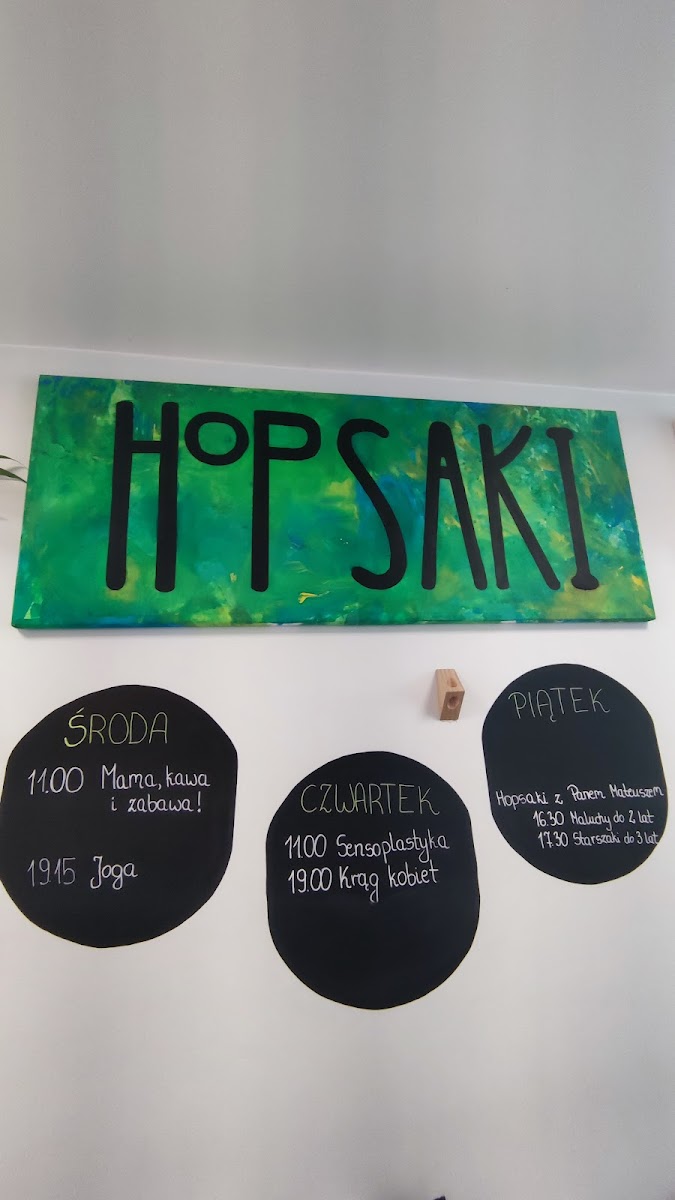 HOPSAKI
ŚRODA
11.00 Mama, kawa
i zabawa!
19.15 Joga
CZWARTEK
11.00 Sensoplastyka
19.00 Krąg kobiet
PIĄTEK
Hopsaki z Panem Mateuszem
16.30 Maluchy do 2 lat
17.30 Starszaki do 3 lat